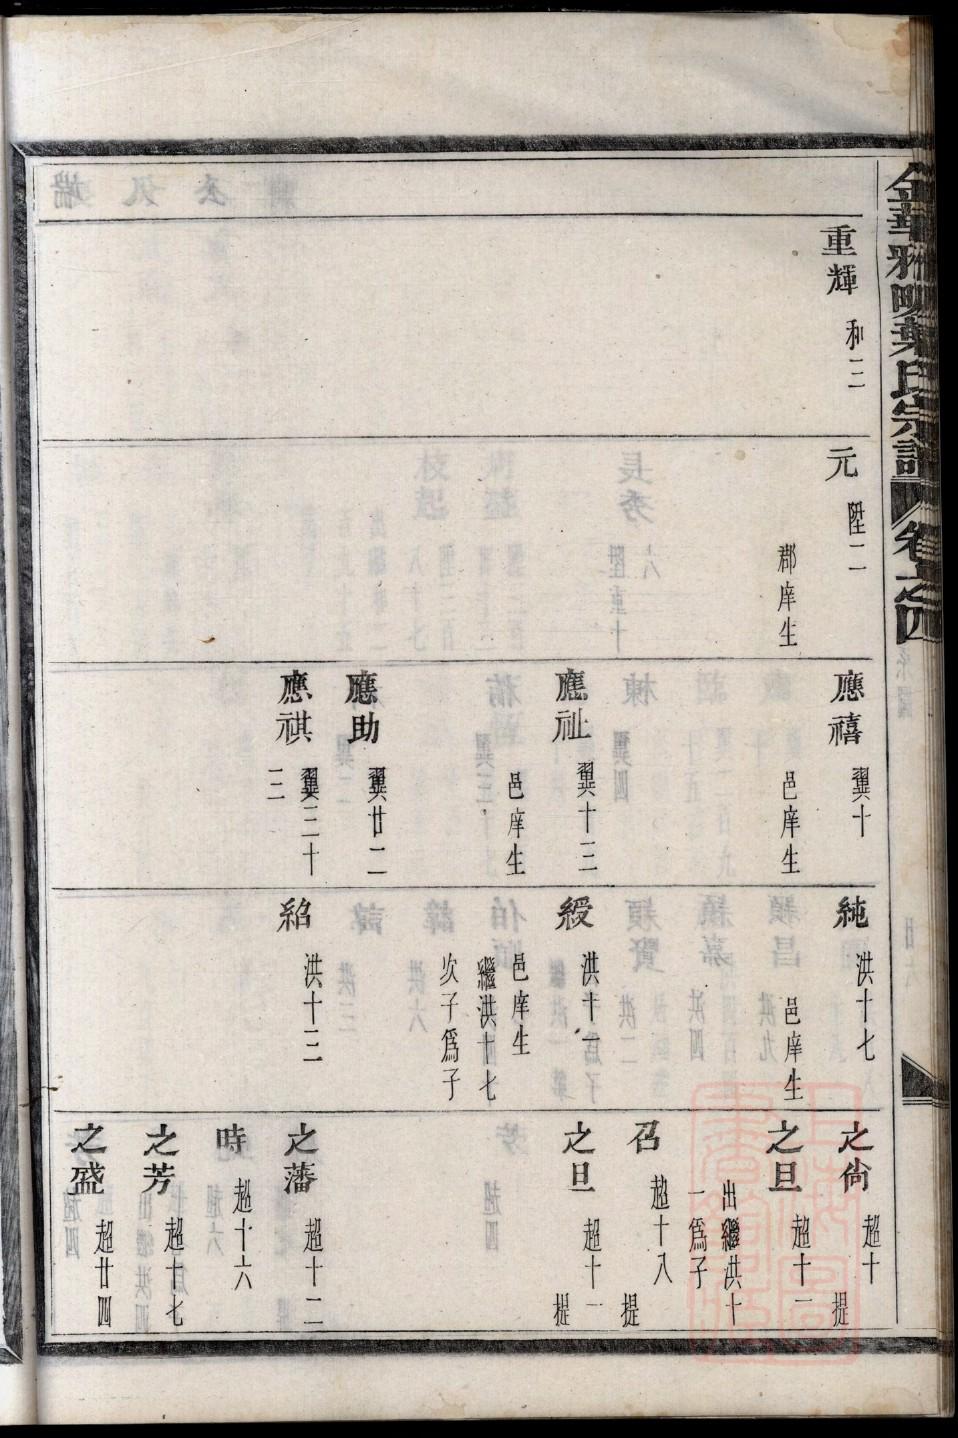 金華雅畈葉氏宗譜 卷之四
重輝 和三
元 陞二
郡庠生
應禧 翼十
邑庠生
應祉 翼十三
邑庠生
應助 翼廿二
應祺 翼三十
三
純 洪十七
邑庠生
綬 洪十一
邑庠生
繼洪十七
次子爲子
紹 洪十三
之尙 超十
提
之旦 超十一
出繼洪十
一爲子
召 超十八
提
之旦 超十一
提
之藩 超十二
時 超十六
之芳 超十七
之盛 超廿四